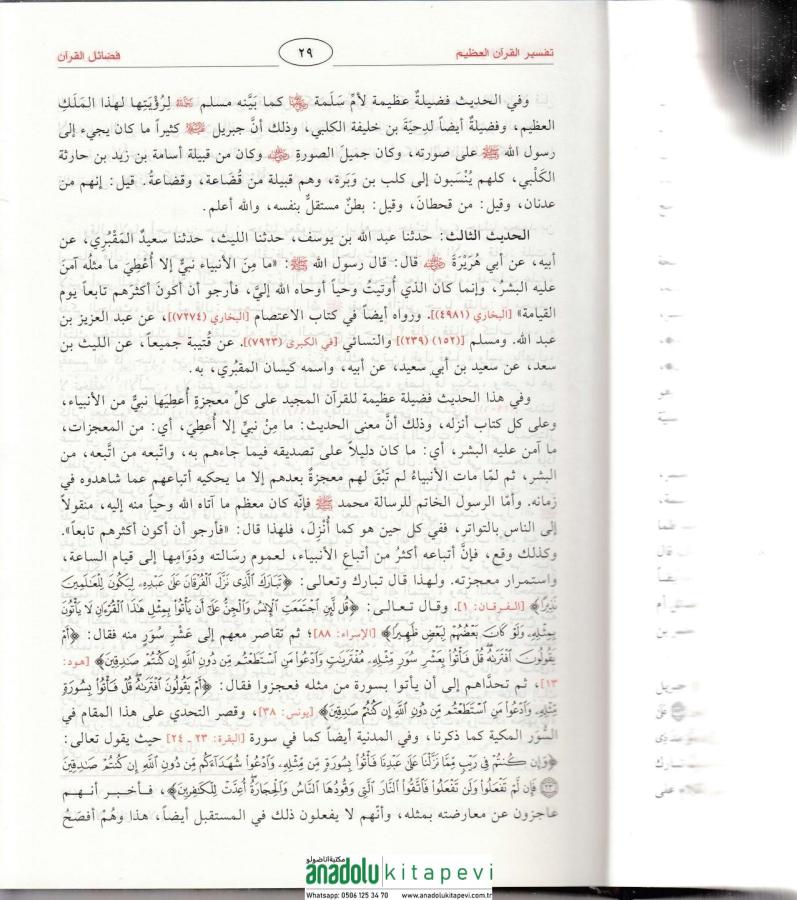 تفسير القرآن العظيم
٢٩
فضائل القرآن
وفي الحديث فضيلةٌ عظيمة لأمِّ سَلَمة ﷺ كما بيَّنه مسلم ﷺ لِرُؤْيَتِها لهذا المَلَكِ
العظيم، وفضيلةٌ أيضاً لدِحيَةَ بن خليفة الكلبي، وذلك أنَّ جبريل ﷺ كثيراً ما كان يجيء إلى
رسول الله ﷺ على صورته، وكان جميلَ الصورةِ ﷺ وكان من قبيلة أسامة بن زيد بن حارثة
الكَلْبي، كلهم يُنْسَبون إلى كلب بن وَبَرة، وهم قبيلة من قُضَاعة، وقضاعةُ. قيل: إنهم من
عدنان، وقيل: من قحطانَ، وقيل: بطنٌ مستقلٌّ بنفسه، والله أعلم.
الحديث الثالث: حدثنا عبد الله بن يوسف، حدثنا الليث، حدثنا سعيدٌ المَقْبُرِي، عن
أبيه، عن أبي هُرَيْرَةَ ﷺ قال: قال رسول الله ﷺ: «ما مِنَ الأنبياء نبيٌّ إلا أُعْطِيَ ما مثلُه آمنَ
عليه البشرُ، وإنما كان الذي أُوتيتُ وحياً أوحاه الله إليَّ، فأرجو أن أكونَ أكثرَهم تابعاً يوم
القيامة» [البخاري (٤٩٨١)]. ورواه أيضاً في كتاب الاعتصام [البخاري (٧٢٧٤)]، عن عبد العزيز بن
عبد الله. ومسلم [(١٥٢) (٢٣٩)] والنسائي [في الكبرى (٧٩٢٣)]. عن قُتيبة جميعاً، عن الليث بن
سعد، عن سعيد بن أبي سعيد، عن أبيه، واسمه كيسان المقبُري، به.
وفي هذا الحديث فضيلة عظيمة للقرآن المجيد على كلِّ معجزةٍ أُعطِيَها نبيٌّ من الأنبياء،
وعلى كل كتاب أنزله، وذلك أنَّ معنى الحديث: ما مِنْ نبي إلا أُعطِيَ، أي: من المعجزات،
ما آمن عليه البشر، أي: ما كان دليلاً على تصديقه فيما جاءهم به، واتّبعه من اتَّبعه، من
البشر، ثم لمّا مات الأنبياءُ لم تَبْقَ لهم معجزةٌ بعدهم إلا ما يحكيه أتباعهم عما شاهدوه في
زمانه. وأمّا الرسول الخاتم للرسالة محمد ﷺ فإنّه كان معظم ما آتاه الله وحياً منه إليه، منقولاً
إلى الناس بالتواتر، ففي كل حين هو كما أُنْزِلَ، فلهذا قال: «فأرجو أن أكون أكثرهم تابعاً».
وكذلك وقع، فإنَّ أتباعه أكثرُ من أتباع الأنبياء، لعموم رسالته ودَوَامِها إلى قيام الساعة،
واستمرار معجزته. ولهذا قال تبارك وتعالى: ﴿تَبَارَكَ الَّذِى نَزَّلَ الْفُرْقَانَ عَلَىٰ عَبْدِهِۦ لِيَكُونَ لِلْعَٰلَمِينَ
نَذِيرًا﴾ [الفرقان: ١]. وقال تعالى: ﴿قُل لَّئِنِ اجْتَمَعَتِ الْإِنسُ وَالْجِنُّ عَلَىٰٓ أَن يَأْتُوا۟ بِمِثْلِ هَٰذَا الْقُرْءَانِ لَا يَأْتُونَ
بِمِثْلِهِۦ وَلَوْ كَانَ بَعْضُهُمْ لِبَعْضٍ ظَهِيرًا﴾ [الإسراء: ٨٨]؛ ثم تقاصر معهم إلى عَشْرِ سُوَرٍ منه فقال: ﴿أَمْ
يَقُولُونَ افْتَرَىٰهُ قُلْ فَأْتُوا۟ بِعَشْرِ سُوَرٍ مِّثْلِهِۦ مُفْتَرَيَٰتٍ وَادْعُوا۟ مَنِ اسْتَطَعْتُم مِّن دُونِ اللَّهِ إِن كُنتُمْ صَٰدِقِينَ﴾ [هود:
١٣]، ثم تحدّاهم إلى أن يأتوا بسورة من مثله فعجزوا فقال: ﴿أَمْ يَقُولُونَ افْتَرَىٰهُ قُلْ فَأْتُوا۟ بِسُورَةٍ
مِّثْلِهِۦ وَادْعُوا۟ مَنِ اسْتَطَعْتُم مِّن دُونِ اللَّهِ إِن كُنتُمْ صَٰدِقِينَ﴾ [يونس: ٣٨]، وقصر التحدي على هذا المقام في
السُّوَر المكية كما ذكرنا، وفي المدنية أيضاً كما في سورة [البقرة: ٢٣ ـ ٢٤] حيث يقول تعالى:
﴿وَإِن كُنتُمْ فِى رَيْبٍ مِّمَّا نَزَّلْنَا عَلَىٰ عَبْدِنَا فَأْتُوا۟ بِسُورَةٍ مِّن مِّثْلِهِۦ وَادْعُوا۟ شُهَدَآءَكُم مِّن دُونِ اللَّهِ إِن كُنتُمْ صَٰدِقِينَ
٢٣ فَإِن لَّمْ تَفْعَلُوا۟ وَلَن تَفْعَلُوا۟ فَاتَّقُوا۟ النَّارَ الَّتِى وَقُودُهَا النَّاسُ وَالْحِجَارَةُ أُعِدَّتْ لِلْكَٰفِرِينَ﴾، فأخبر أنهم
عاجزون عن معارضته بمثله، وأنّهم لا يفعلون ذلك في المستقبل أيضاً، هذا وهُمْ أفصَحُ
مكتبة اناضولو
anadolukitapevi
Whatsapp: 0506 125 34 70
www.anadolukitapevi.com.tr